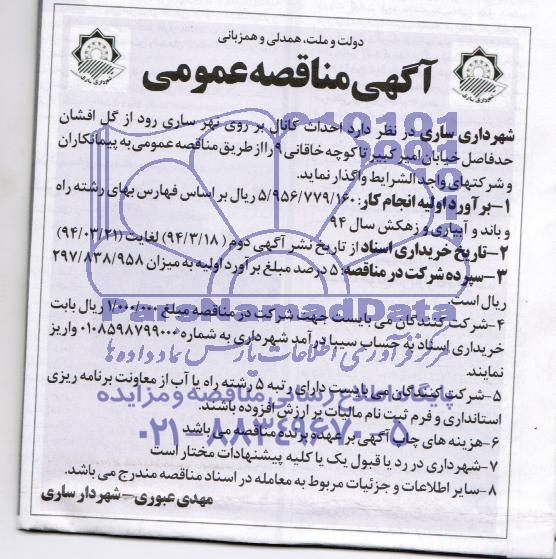 دولت و ملت، همدلی و همزبانی
آگهی مناقصه عمومی
شهرداری ساری
شهرداری ساری
شهرداری ساری در نظر دارد احداث کانال بر روی نهر ساری رود از گل افشان
حدفاصل خیابان امیرکبیر تا کوچه خاقانی ۹ را از طریق مناقصه عمومی به پیمانکاران
و شرکتهای واجد الشرایط واگذار نماید.
۱-برآورد اولیه انجام کار: ۵/۹۵۶/۷۷۹/۱۶۰ ریال بر اساس فهارس بهای رشته راه
و باند و آبیاری و زهکش سال ۹۴
۲-تاریخ خریداری اسناد از تاریخ نشر آگهی دوم (۹۴/۳/۱۸) لغایت (۹۴/۰۳/۲۱)
۳-سپرده شرکت در مناقصه: ۵ درصد مبلغ برآورد اولیه به میزان ۲۹۷/۸۳۸/۹۵۸
ریال است.
۴-شرکت کنندگان می بایست جهت شرکت در مناقصه مبلغ ۱/۰۰۰/۰۰۰ ریال بابت
خریداری اسناد به حساب سیبا درآمد شهرداری به شماره ۰۱۰۸۵۹۸۷۹۹۰۰۰ واریز
نمایند.
۵-شرکت کنندگان می بایست دارای رتبه ۵ رشته راه یا آب از معاونت برنامه ریزی
استانداری و فرم ثبت نام مالیات بر ارزش افزوده باشند.
۶-هزینه های چاپ آگهی بر عهده برنده مناقصه می باشد
۷-شهرداری در رد یا قبول یک یا کلیه پیشنهادات مختار است
۸-سایر اطلاعات و جزئیات مربوط به معامله در اسناد مناقصه مندرج می باشد.
مهدی عبوری-شهردار ساری
ParsNamadData
مرکز فرآوری اطلاعات پارس نماد داده ها
پایگاه اطلاع رسانی مناقصه و مزایده
۰۲۱-۸۸۳۴۹۶۷۰-۵